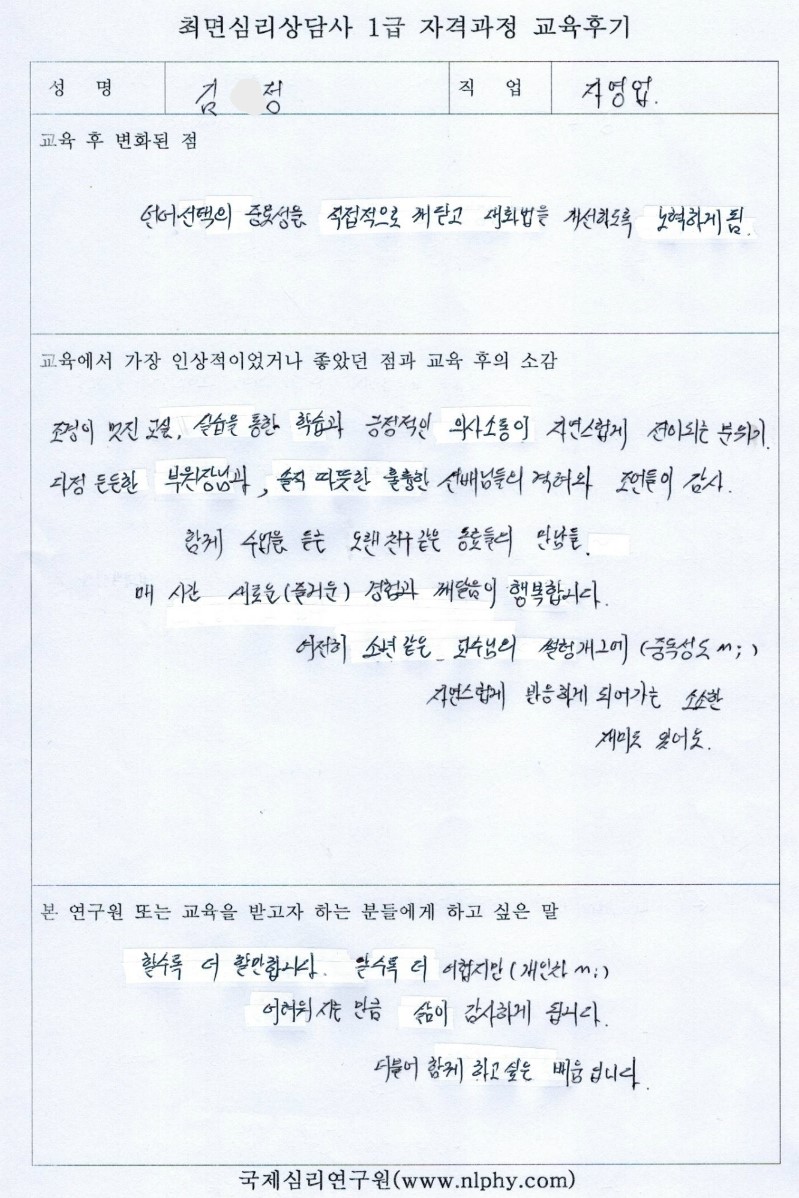 최면심리상담사 1급 자격과정 교육후기
성 명 김 정 직 업 자영업.
교육 후 변화된 점
언어선택의 중요성을 직접적으로 깨닫고 대화법을 개선하도록 노력하게 됨.
교육에서 가장 인상적이었거나 좋았던 점과 교육 후의 소감
조경이 멋진 교실, 실습을 통한 학습과 긍정적인 의사소통이 자연스럽게 전이되는 분위기.
다정 든든한 부원장님과, 솔직 따뜻한 훌륭한 선배님들의 격려와 조언들이 감사.
함께 수업을 듣는 오랜 친구같은 동료들의 만남들.
매 시간 새로운(즐거운) 경험과 깨달음이 행복합니다.
여전히 소년같은 교수님의 썰렁개그에 (중독성도 m;)
자연스럽게 반응하게 되어가는 소소한
재미도 있어요.
본 연구원 또는 교육을 받고자 하는 분들에게 하고 싶은 말
할수록 더 할만합니다. 알수록 더 어렵지만 (개인차 m;)
어려워지는 만큼 삶이 감사하게 됩니다.
더불어 함께 하고싶은 배움입니다.
국제심리연구원(www.nlphy.com)